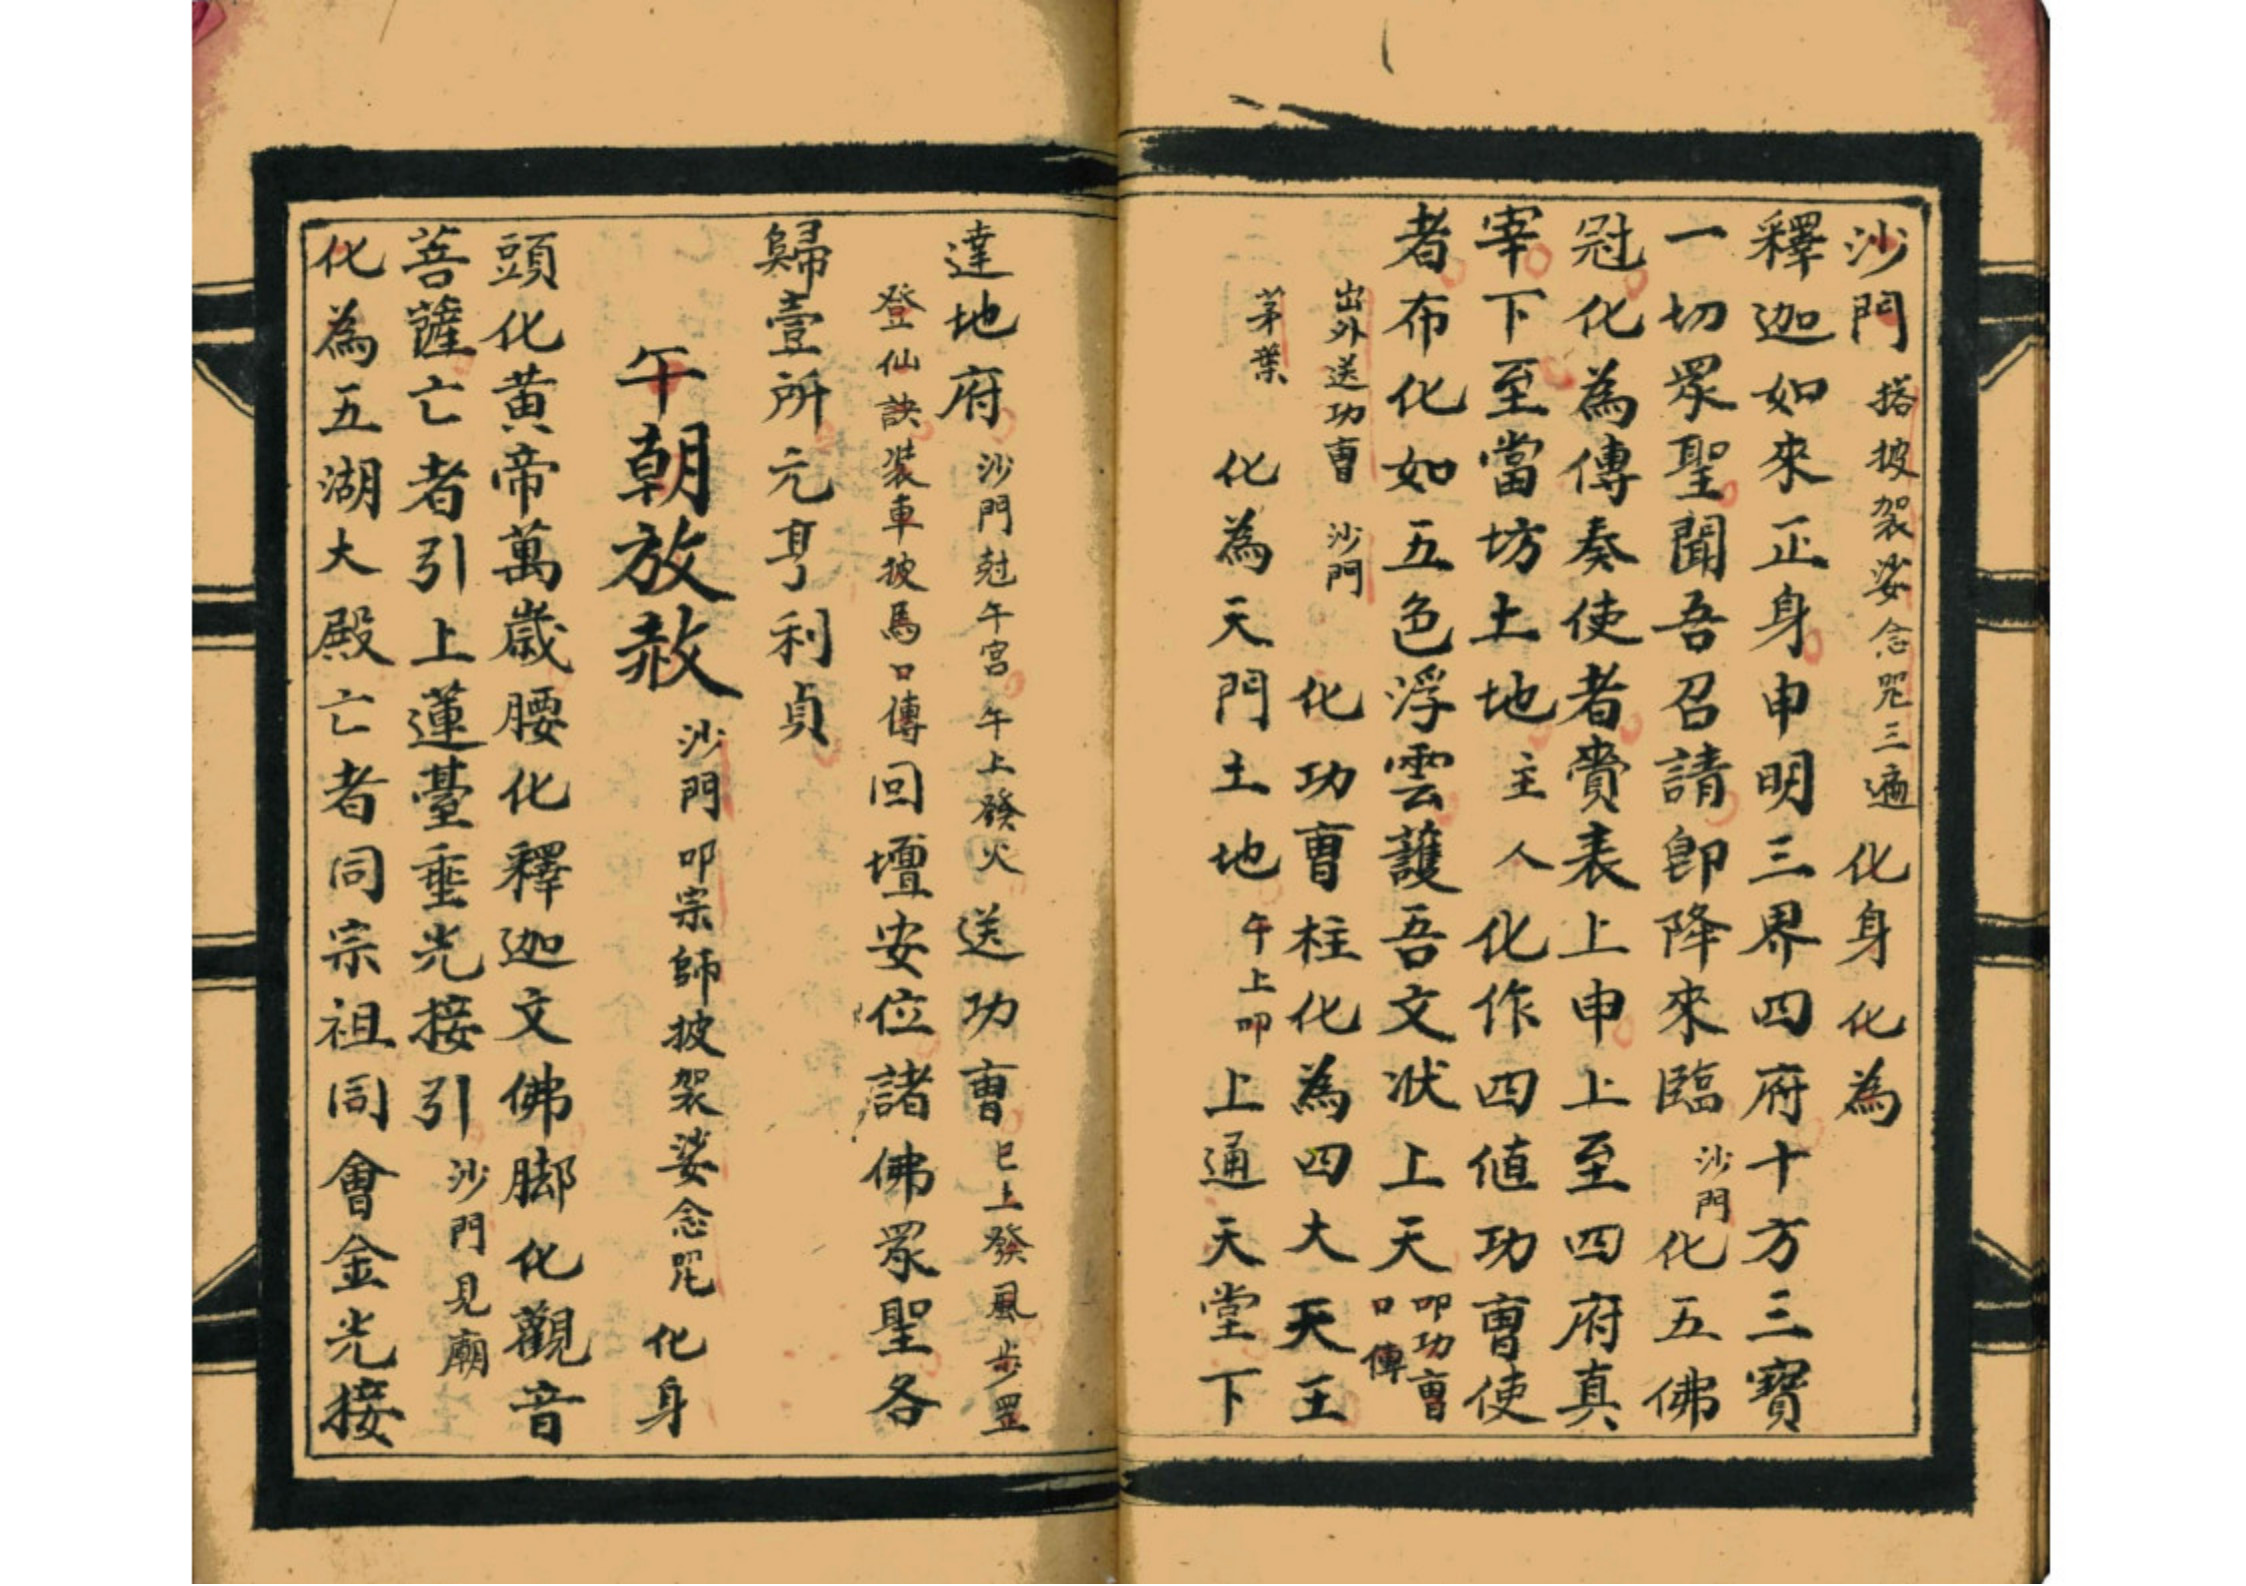 沙門搭披袈裟念咒三遍化身化為
釋迦如來正身申明三界四府十方三寶
一切眾聖聞吾召請即降來臨沙門化五佛
冠化為傳奏使者賫表上申上至四府真
宰下至當坊土地主人化作四值功曹使
者布化如五色浮雲護吾文狀上天叩功曹口傳
出外送功曹沙門化功曹柱化為四大天王
茅葉化為天門土地午上叩上通天堂下
達地府沙門尅午宮午上發火送功曹巳上發風步罡
登仙訣裝車披馬口傳回壇安位諸佛眾聖各
歸壹所元亨利貞
午朝放赦沙門叩宗師披袈裟念咒化身
頭化黃帝萬歲腰化釋迦文佛脚化觀音
菩薩亡者引上蓮臺垂光接引沙門見廟
化為五湖大殿亡者同宗祖同會金光接